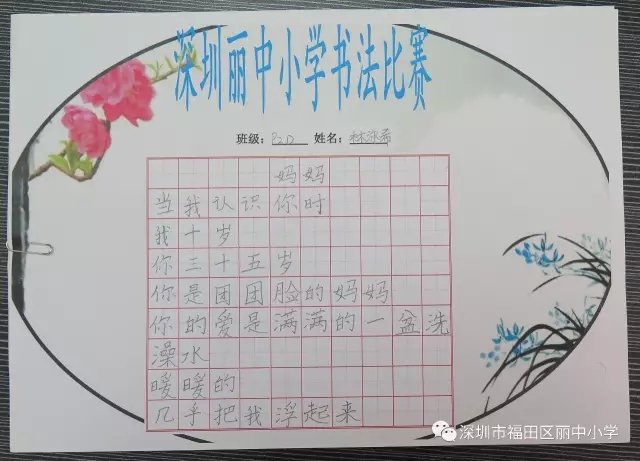 深圳丽中小学书法比赛
班级：P2D 姓名：林泳希
妈妈
当我认识你时
我十岁
你三十五岁
你是团团脸的妈妈
你的爱是满满的一盆洗
澡水
暖暖的
几乎把我浮起来
深圳市福田区丽中小学